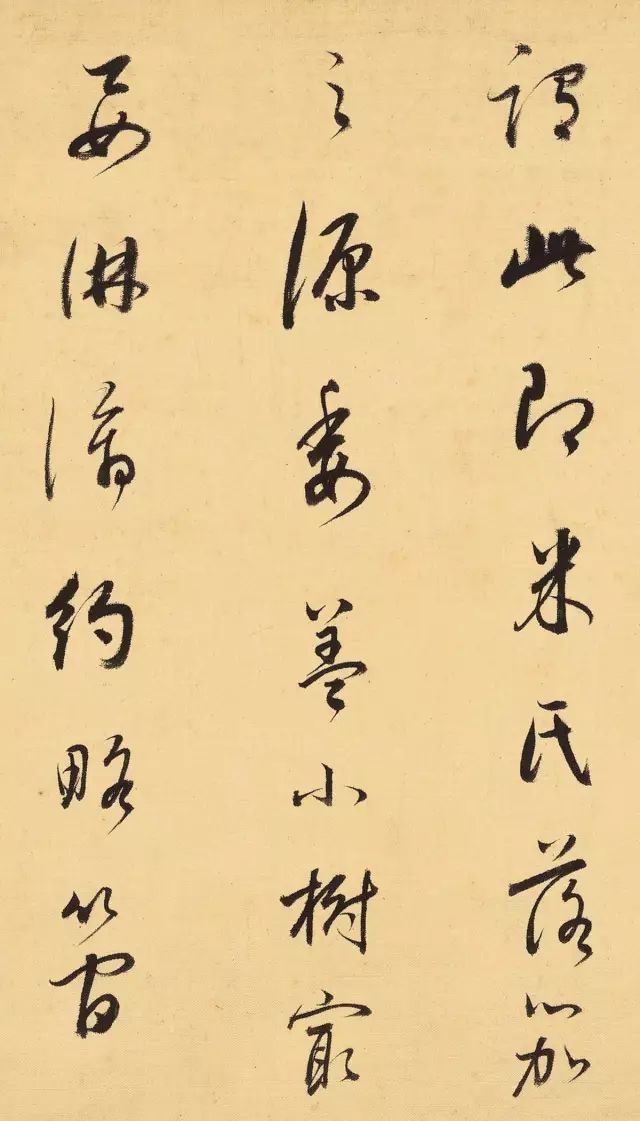 謂此即米氏落笳
之源委蓋小樹最
要淋漓約略簡